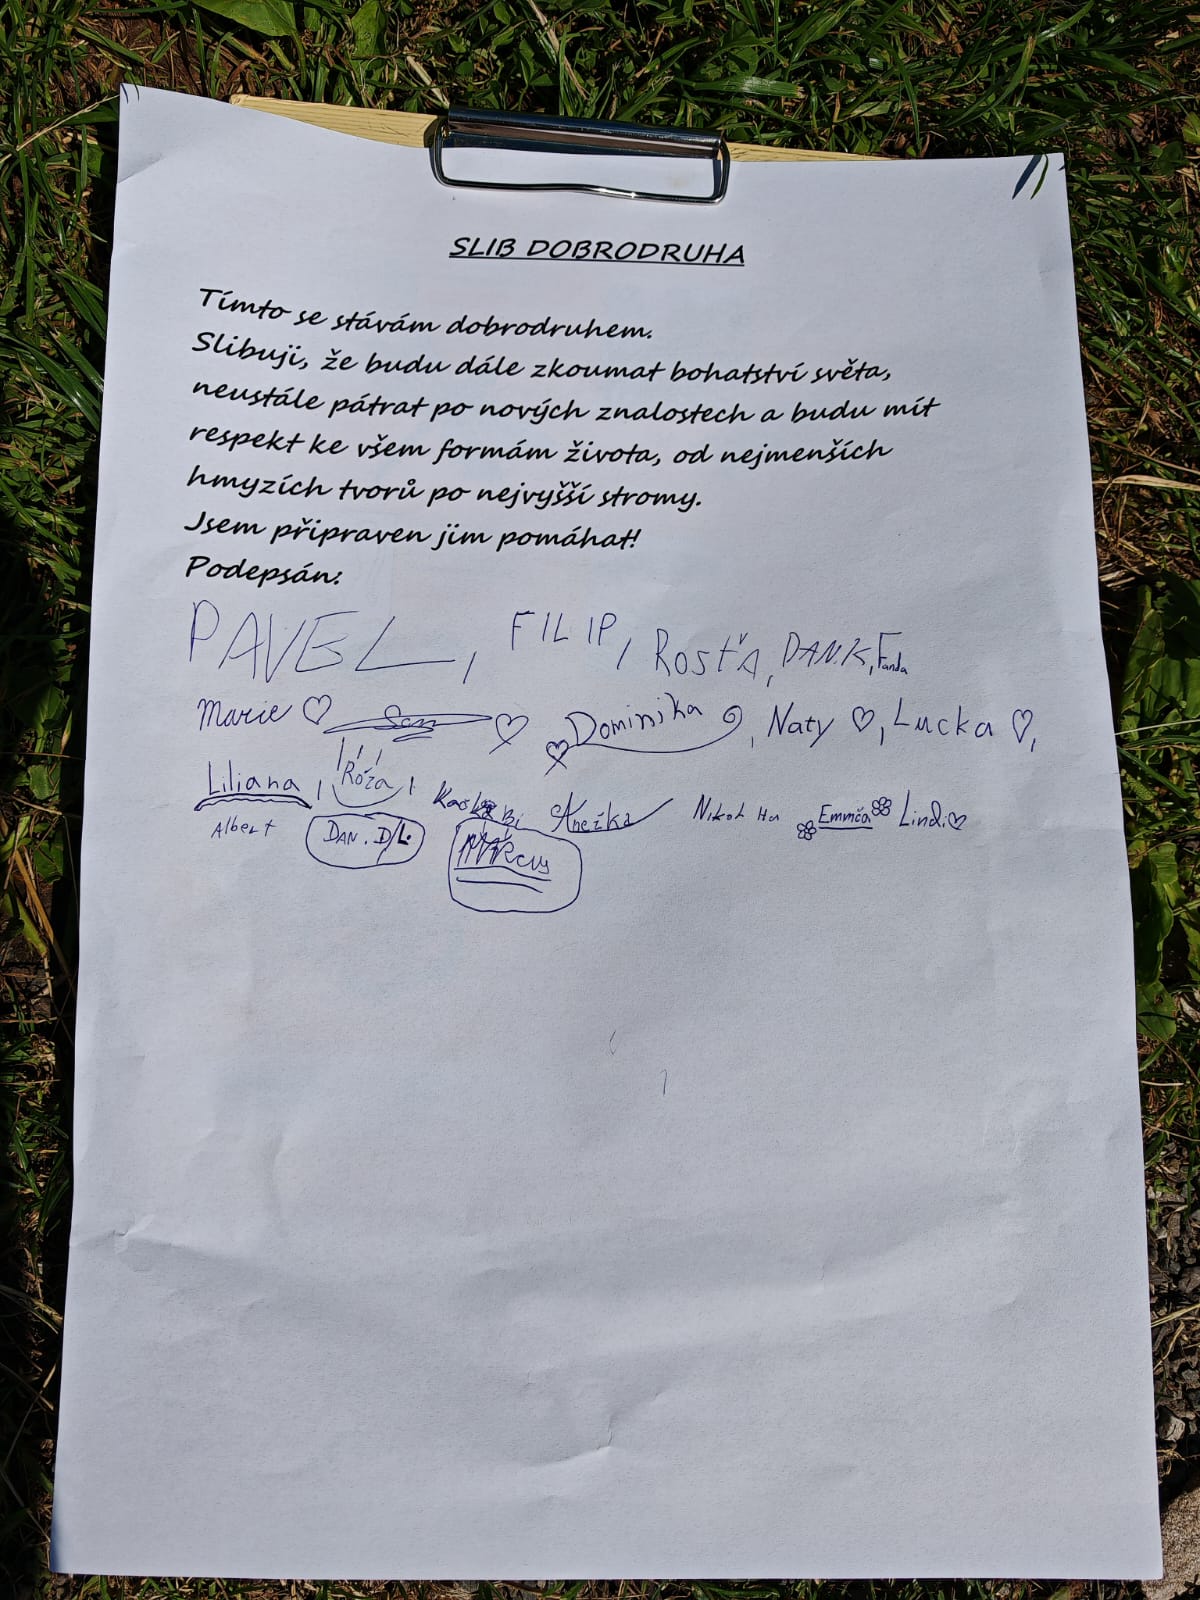 SLIB DOBRODRUHA
Tímto se stávám dobrodruhem.
Slibuji, že budu dále zkoumat bohatství světa,
neustále pátrat po nových znalostech a budu mít
respekt ke všem formám života, od nejmenších
hmyzích tvorů po nejvyšší stromy.
Jsem připraven jim pomáhat!
Podepsán:
PAVEL, FILIP, ROSŤA, DAN.K, Fanda
Marie Dominika, Naty, Lucka,
Liliana, Róza, Anežka Nikol Ha Emmča Lindi
Albert DAN. D/L.